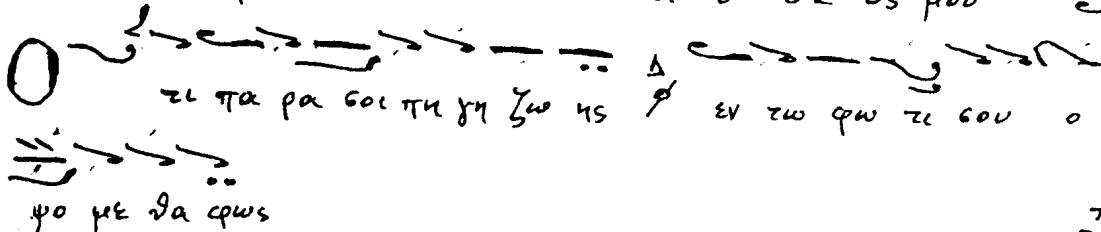 μου
Ο τι πα ρα σοι πη γη ζω ης Δ εν τω φω τι σου ο
ψο με θα φως